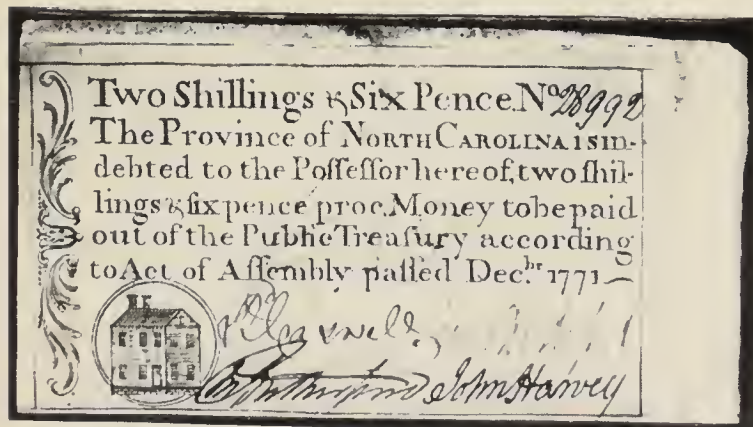 Two Shillings & Six Pence. No 28992
The Province of NORTH CAROLINA is in-
debted to the Poſſeſſor hereof, two ſhil-
lings & ſix pence proc. Money to be paid
out of the Public Treaſury according
to Act of Aſſembly paſſed Decbr 1771
John Harvey